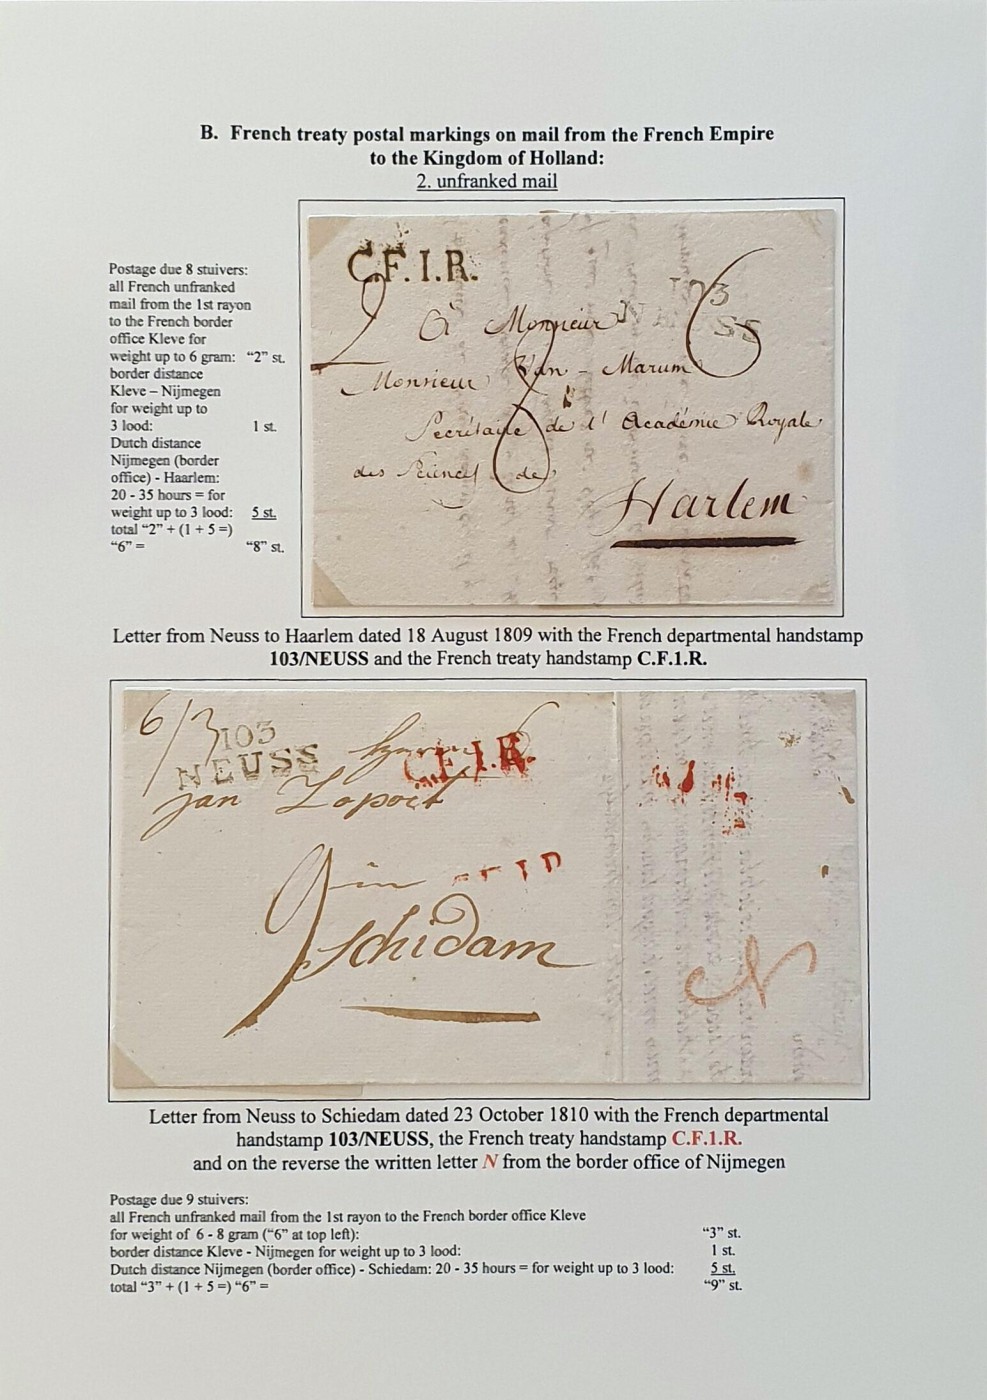 B. French treaty postal markings on mail from the French Empire
to the Kingdom of Holland:
2. unfranked mail
Postage due 8 stuivers:
all French unfranked
mail from the 1st rayon
to the French border
office Kleve for
weight up to 6 gram: “2” st.
border distance
Kleve – Nijmegen
for weight up to
3 lood: 1 st.
Dutch distance
Nijmegen (border
office) - Haarlem:
20 - 35 hours = for
weight up to 3 lood: 5 st.
total “2” + (1 + 5 =)
“6” = “8” st.
C.F.I.R.
103
NEUSS
2
6
8
à Monsieur
Monsieur Van - Marum
Secrétaire de l' Académie Royale
des Siences de
Harlem
Letter from Neuss to Haarlem dated 18 August 1809 with the French departmental handstamp
103/NEUSS and the French treaty handstamp C.F.1.R.
6/3
103
NEUSS
C.F.I.R.
6
jan
in
9
Schidam
N
Letter from Neuss to Schiedam dated 23 October 1810 with the French departmental
handstamp 103/NEUSS, the French treaty handstamp C.F.1.R.
and on the reverse the written letter N from the border office of Nijmegen
Postage due 9 stuivers:
all French unfranked mail from the 1st rayon to the French border office Kleve
for weight of 6 - 8 gram (“6” at top left): “3” st.
border distance Kleve - Nijmegen for weight up to 3 lood: 1 st.
Dutch distance Nijmegen (border office) - Schiedam: 20 - 35 hours = for weight up to 3 lood: 5 st.
total “3” + (1 + 5 =) “6” = “9” st.